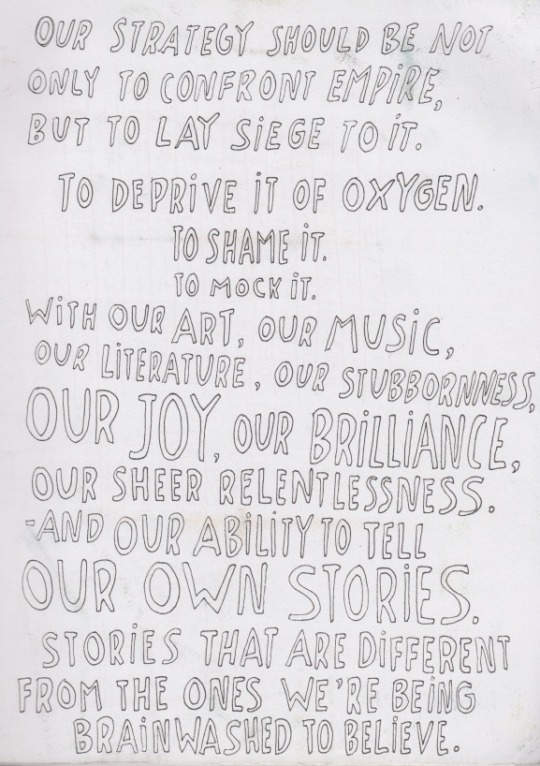 OUR STRATEGY SHOULD BE NOT
ONLY TO CONFRONT EMPIRE,
BUT TO LAY SIEGE TO IT.
TO DEPRIVE IT OF OXYGEN.
TO SHAME IT.
TO MOCK IT.
WITH OUR ART, OUR MUSIC,
OUR LITERATURE, OUR STUBBORNNESS,
OUR JOY, OUR BRILLIANCE,
OUR SHEER RELENTLESSNESS.
-AND OUR ABILITY TO TELL
OUR OWN STORIES.
STORIES THAT ARE DIFFERENT
FROM THE ONES WE'RE BEING
BRAINWASHED TO BELIEVE.